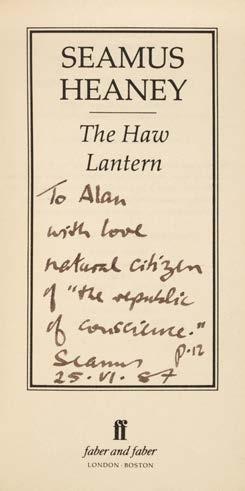 SEAMUS
HEANEY
The Haw
Lantern
To Alan
with love
natural citizen
of "the republic
of conscience."
p.12
Seamus
25.VI.87
ff
faber and faber
LONDON · BOSTON